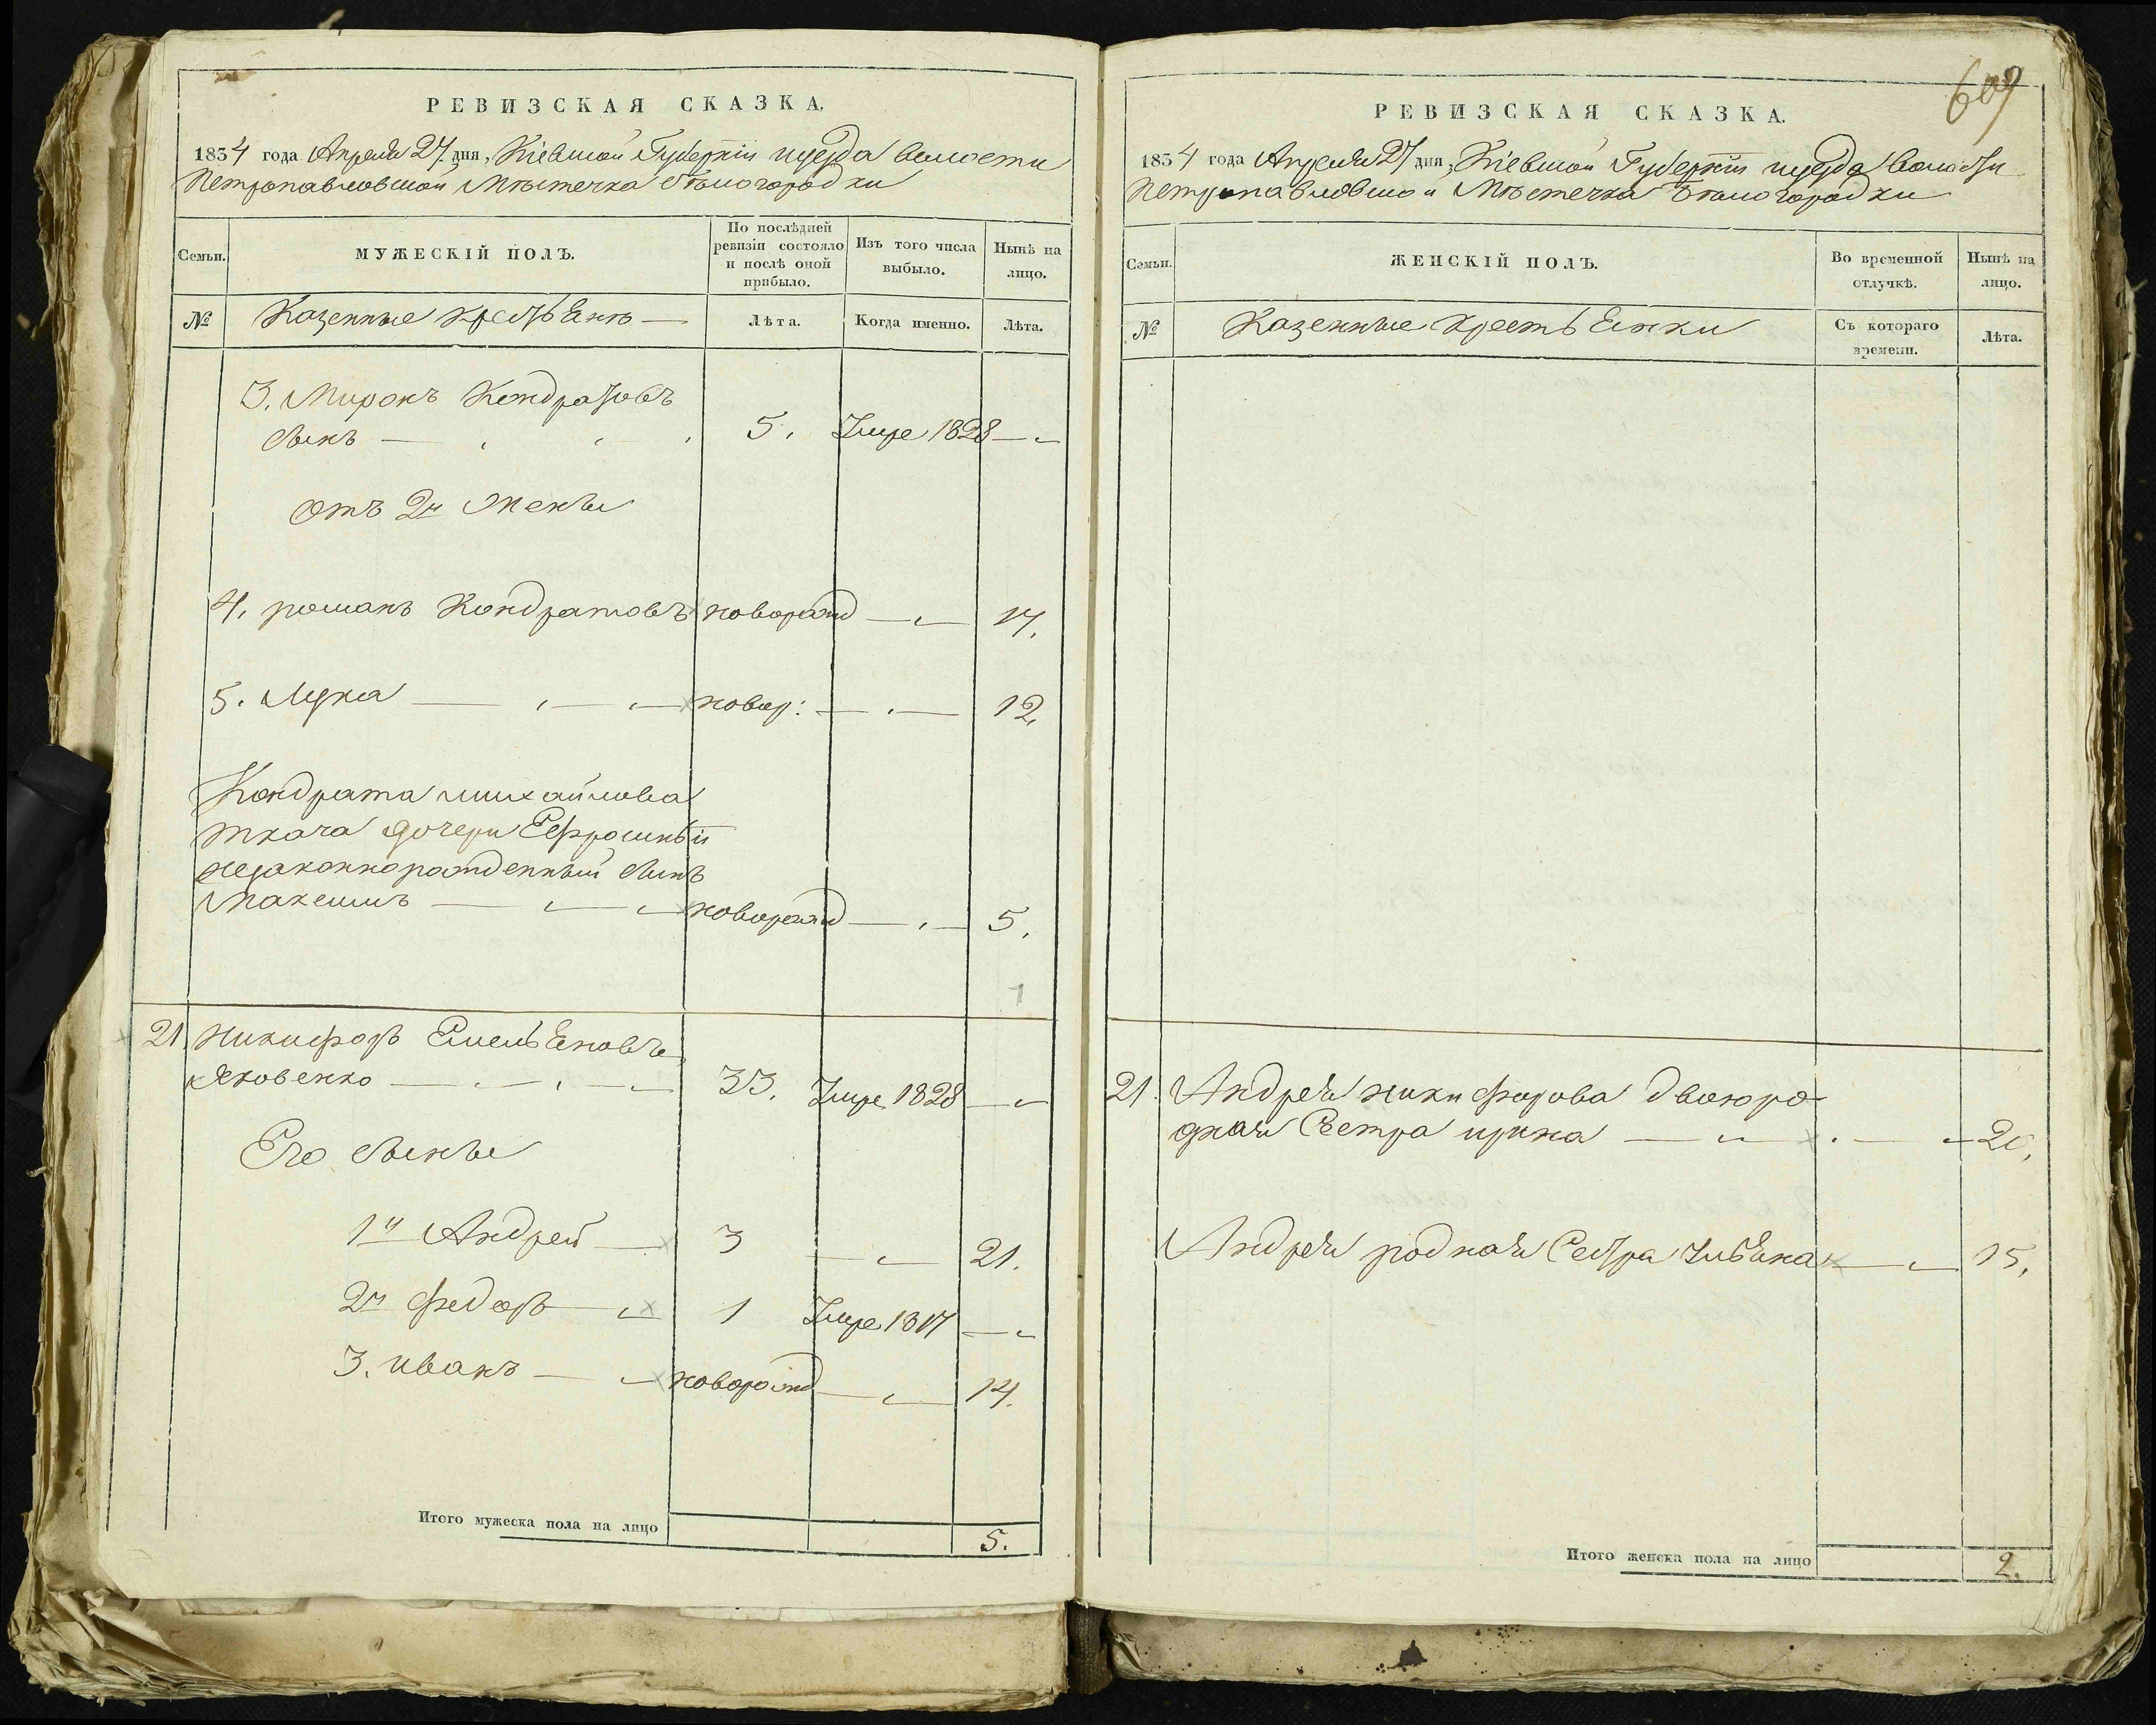 РЕВИЗСКАЯ СКАЗКА.
1834 года Апреля 27. дня, Кіевской Губерніи уезда волости
Петропавловской Мѣстечка Бѣлогородки
Семьи.
МУЖЕСКІЙ ПОЛЪ.
По послѣдней ревизіи состояло и послѣ оной прибыло.
Изъ того числа выбыло.
Нынѣ на лицо.
№
Казенные крестьянѣ —
Лѣта.
Когда именно.
Лѣта.
3. Миронъ Кондратовъ
сынъ — 5. Умре 1828 —
отъ 2й жены
4. романъ Кондратовъ новорожд — 14.
5. Лука — новор: — 12.
Кондрата михайлова
ткача дочери Ефросиніи
незаконнорожденный сынъ
Максимъ — новорожд — 5.
1
21. Никифоръ Емельяновъ
Яковенко — 33. Умре 1828 —
Его сыны
1й Андрей — 3 — 21.
2й федоръ — 1 Умре 1817 —
3. иванъ — новорожд — 14.
Итого мужеска пола на лицо 5.
609
РЕВИЗСКАЯ СКАЗКА.
1834 года Апреля 27 дня, Кіевской Губерніи уезда волости
Петропавловской Мѣстечка Бѣлогородки
Семьи.
ЖЕНСКІЙ ПОЛЪ.
Во временной отлучкѣ.
Нынѣ на лицо.
№
Казенные крестьянки
Съ котораго времени.
Лѣта.
21. Андрея никифорова двоюро-
дная Сестра ирина — 20.
Андрея родная Сестра Ульяна — 15.
Итого женска пола на лицо 2.